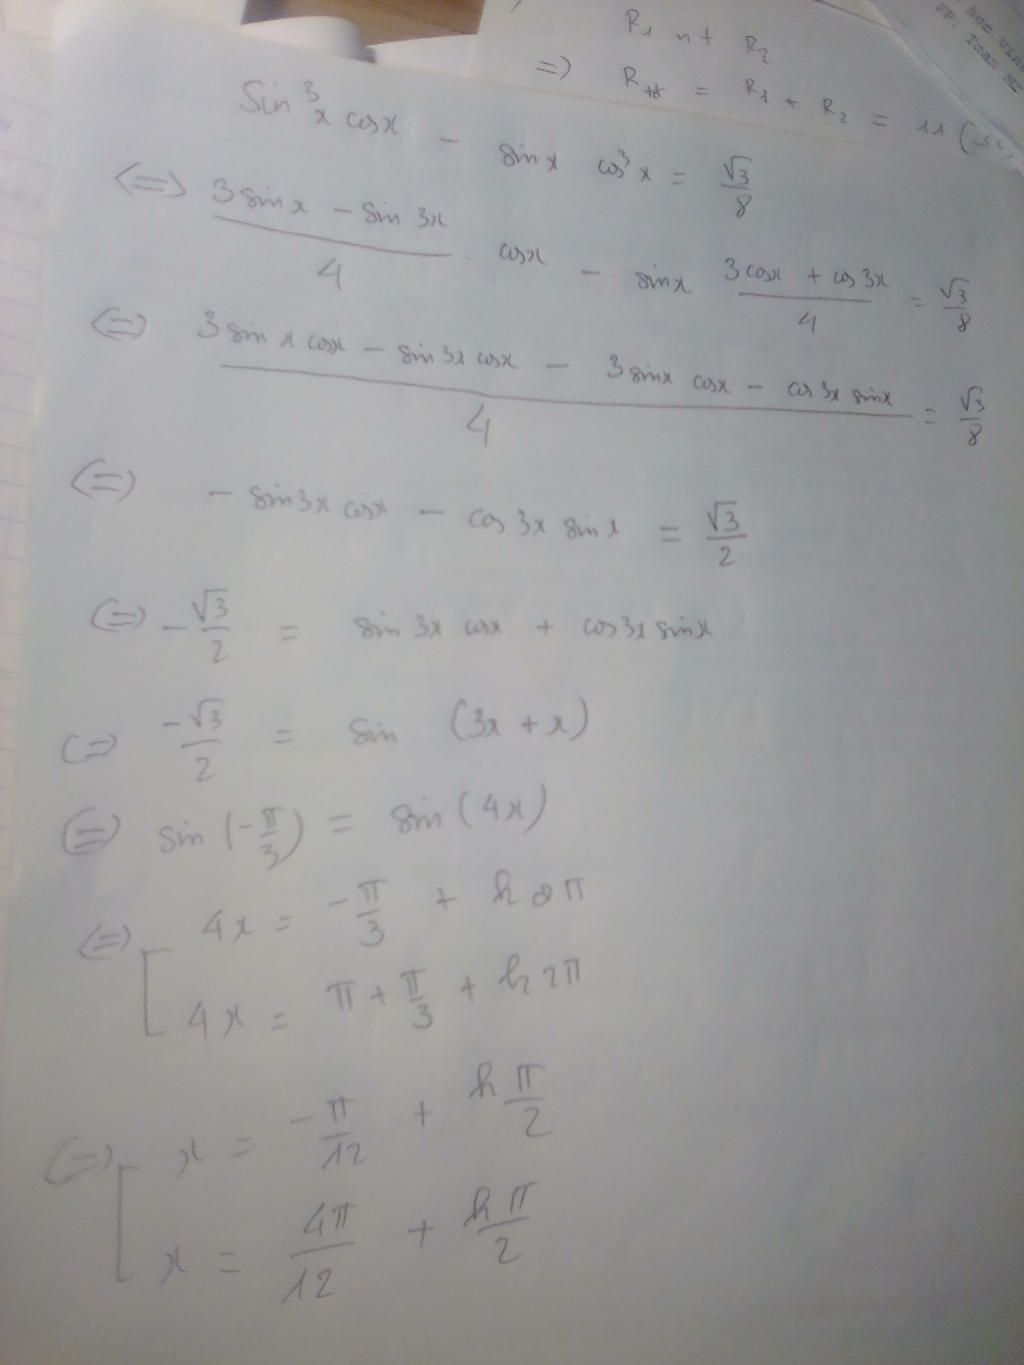 R₁ nt R₂
=> R_tđ = R₁ + R₂ = 11 (
hoc
Sin³x cosx - sinx cos³x = √3/8
<=> (3sinx - sin3x)/4 . cosx - sinx (3cosx + cos3x)/4 = √3/8
<=> (3sinx cosx - sin3x cosx - 3sinx cosx - cos3x sinx)/4 = √3/8
<=> - sin3x cosx - cos3x sinx = √3/2
<=> -√3/2 = sin3x cosx + cos3x sinx
<=> -√3/2 = sin (3x + x)
<=> sin(-π/3) = sin(4x)
<=> [ 4x = -π/3 + k2π
4x = π + π/3 + k2π
<=> [ x = -π/12 + kπ/2
x = 4π/12 + kπ/2